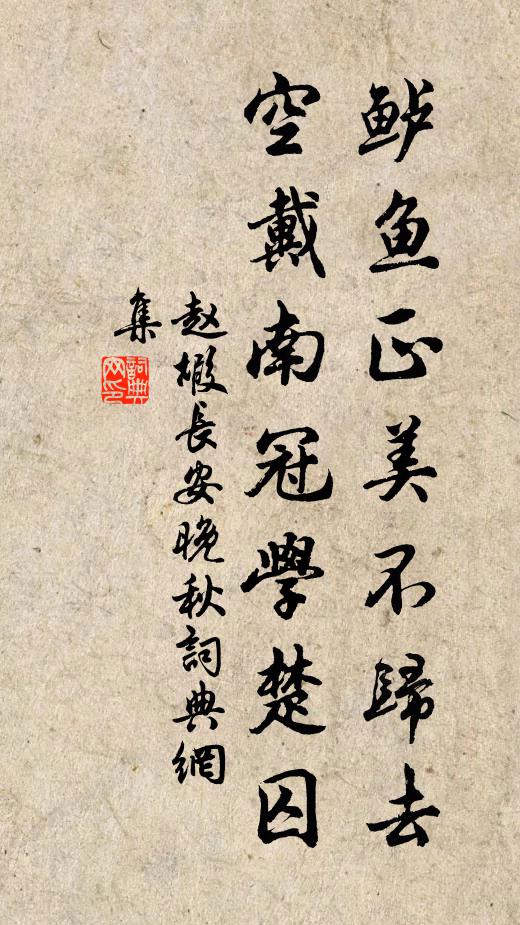 鲈鱼正美不歸去
空戴南冠學楚囚
赵嘏長安晚秋詞典網
集
詞典